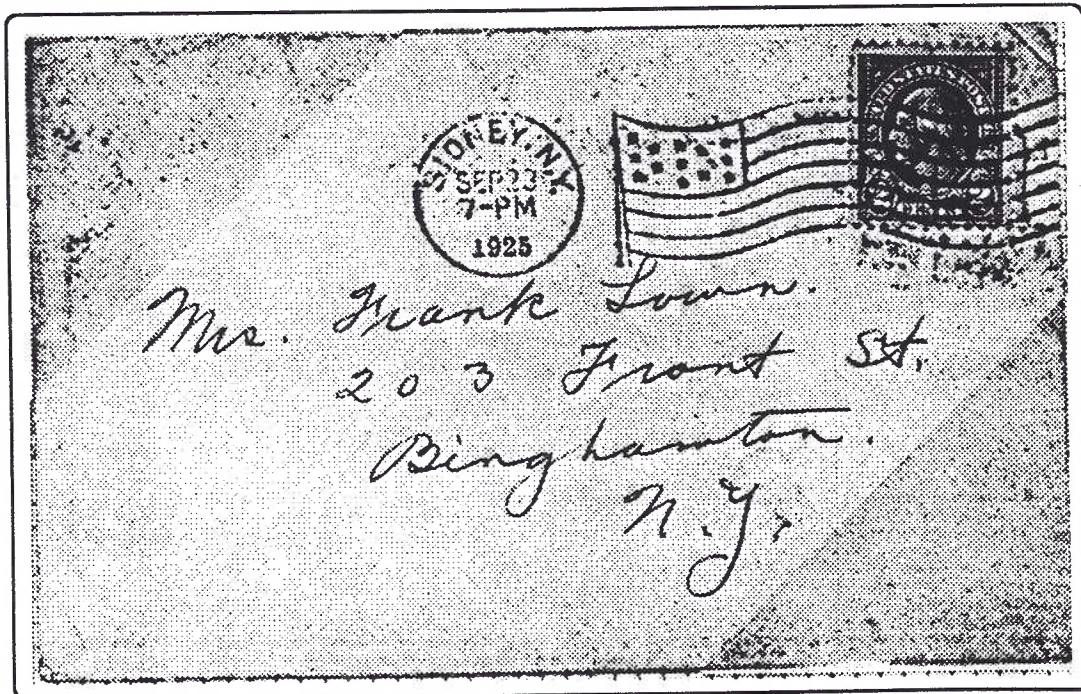 SIDNEY, N.Y.
SEP 23
7-PM
1925
Mrs. Frank Lown.
203 Front St.
Binghamton.
N.Y.